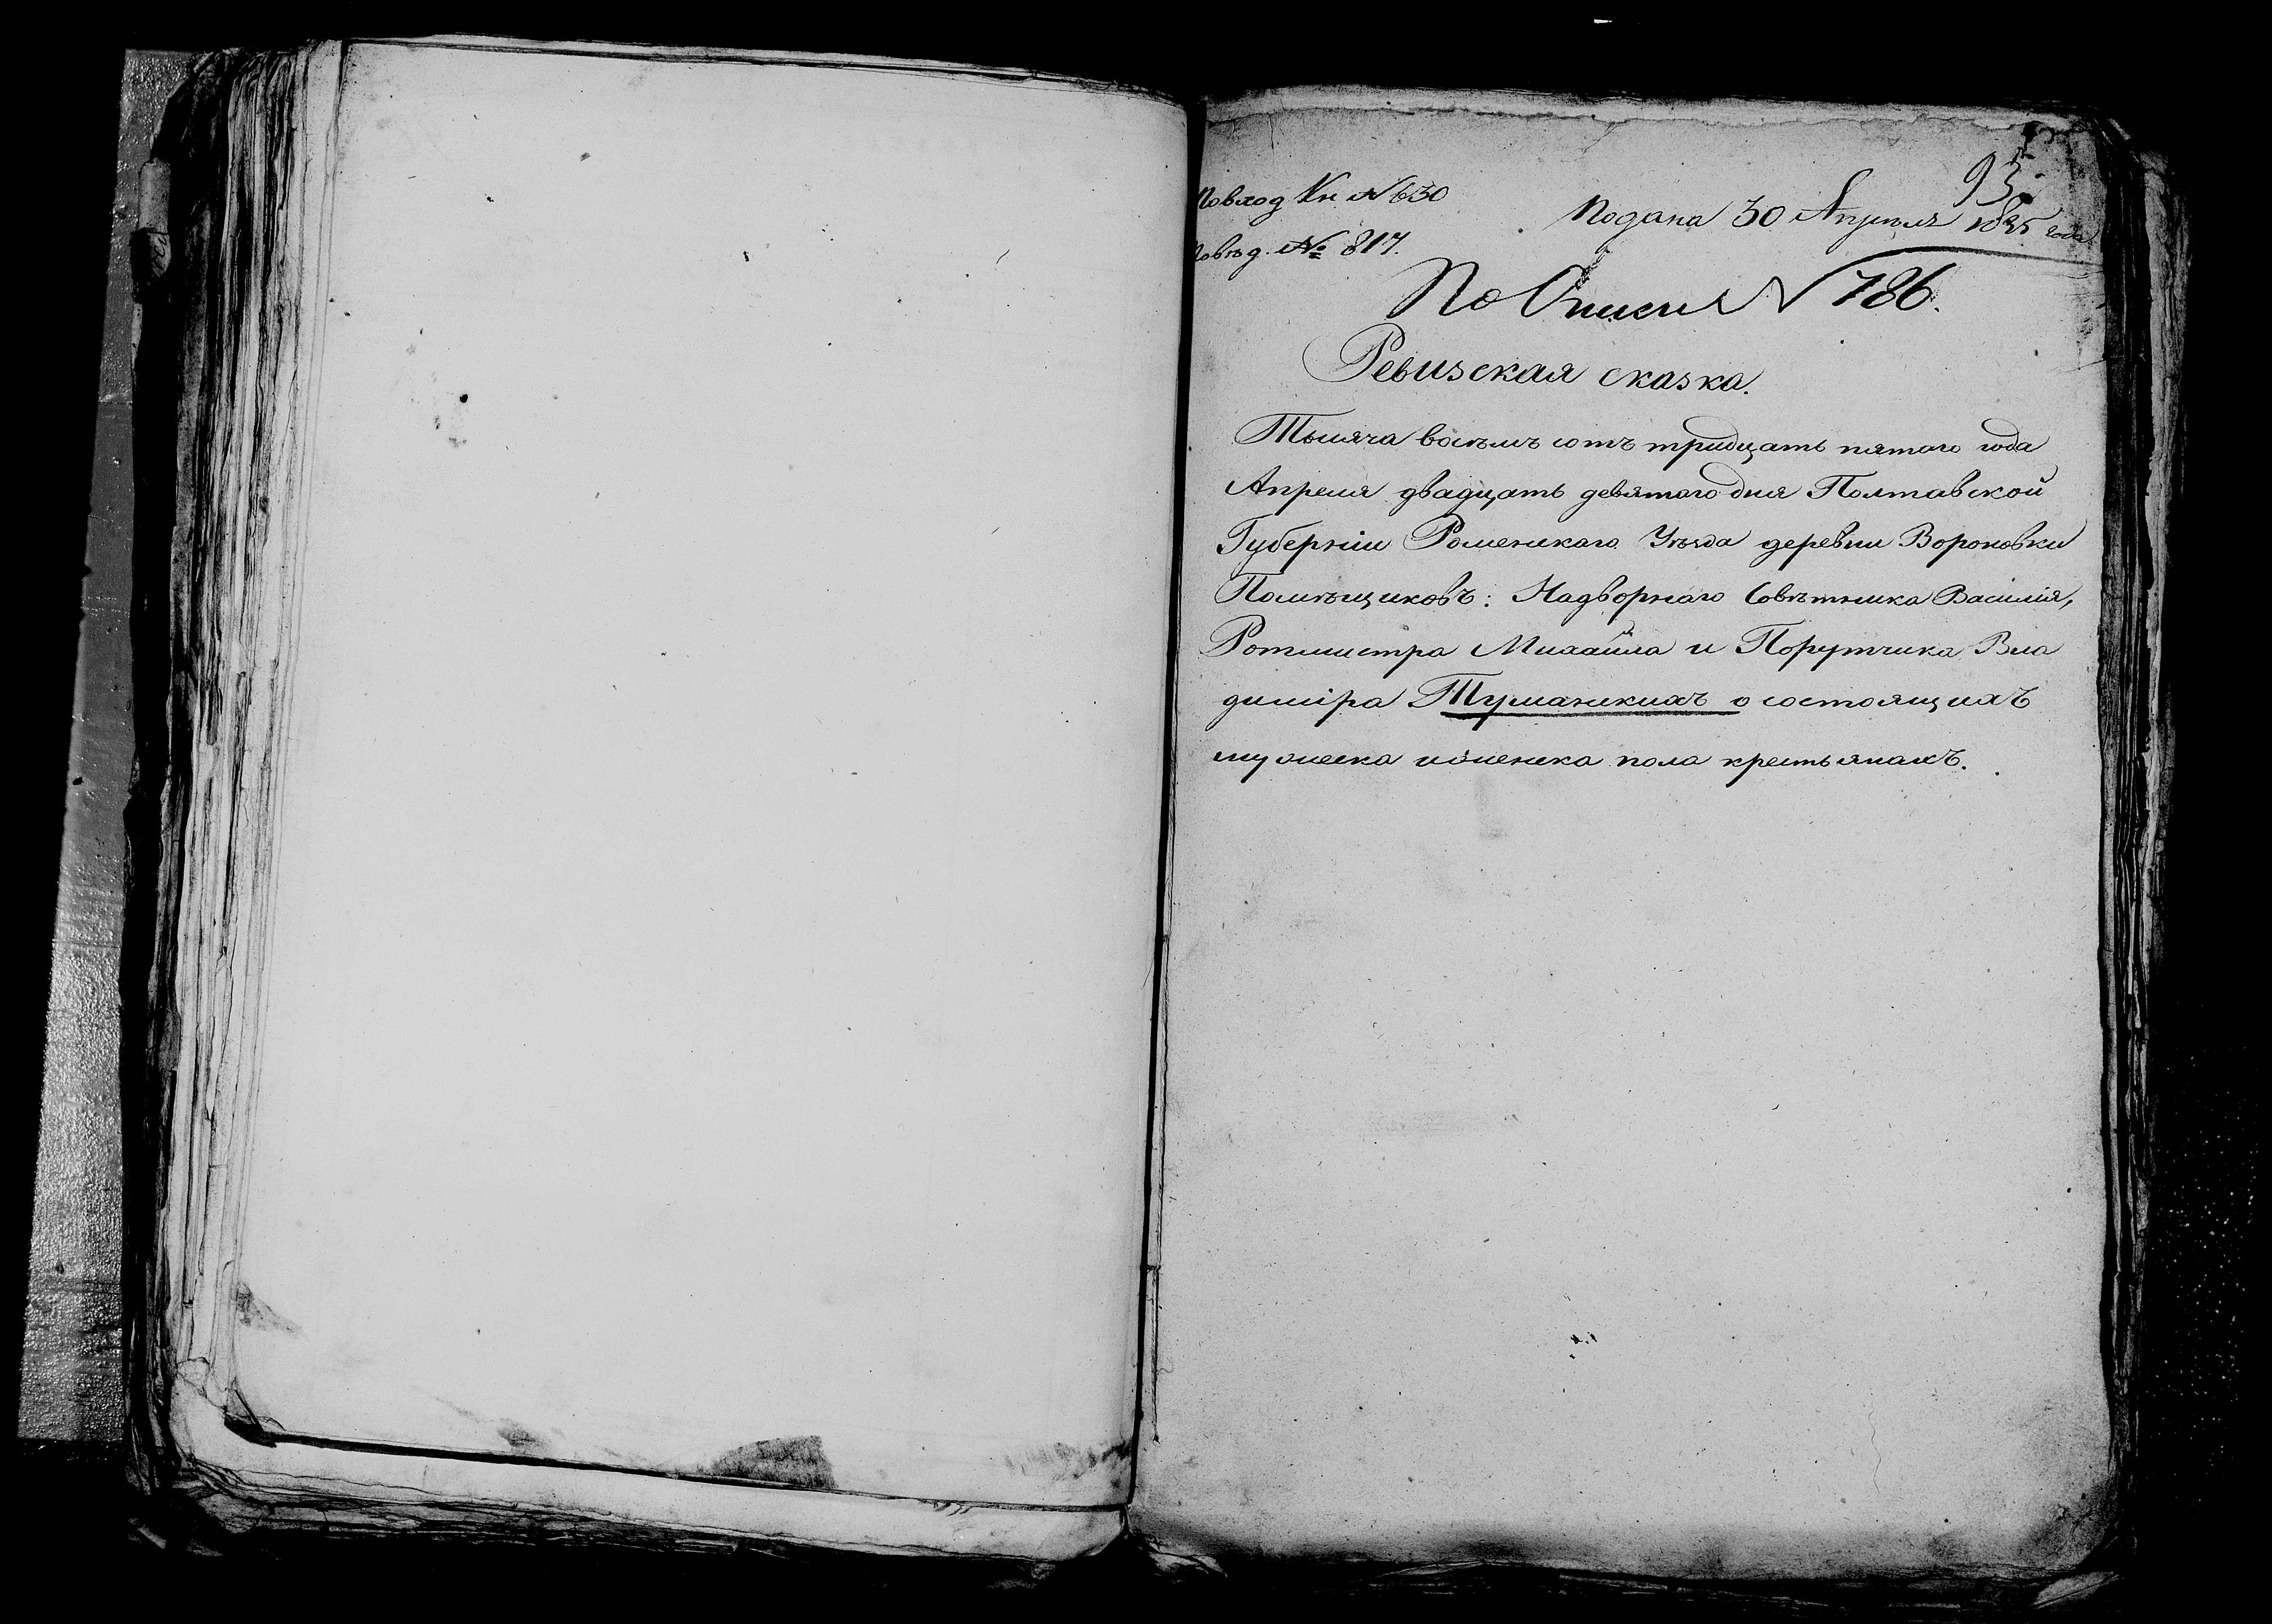 По вход Кн №630
Подана 30 Апреля 1835 года
№ 817.
По Описи №786.
Ревизская сказка.
Тысяча восемь сотъ тридцать пятаго года
Апреля двадцать девятаго дня Полтавской
Губерніи Роменскаго Уѣзда деревни Вороновки
Помѣщиковъ: Надворнаго Совѣтника Василія,
Ротмистра Михайла и Порутчика Вла
диміра Туманскихъ о состоящихъ
мужеска и женска пола крестьянахъ.